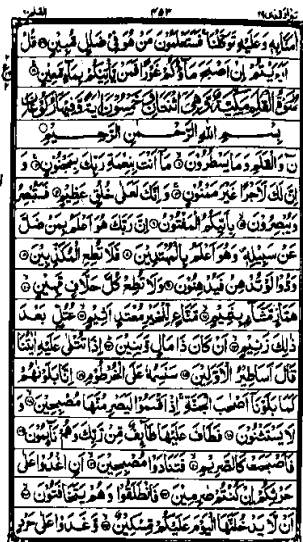 اٰمَنَّا بِهٖ وَعَلَيْهِ تَوَكَّلْنَا فَسَتَعْلَمُوْنَ مَنْ هُوَ فِيْ ضَلٰلٍ مُّبِيْنٍ قُلْ
اَرَءَيْتُمْ اِنْ اَصْبَحَ مَآؤُكُمْ غَوْرًا فَمَنْ يَّاْتِيْكُمْ بِمَآءٍ مَّعِيْنٍ
بِسْمِ اللّٰهِ الرَّحْمٰنِ الرَّحِيْمِ
نٓ وَالْقَلَمِ وَمَا يَسْطُرُوْنَ مَآ اَنْتَ بِنِعْمَةِ رَبِّكَ بِمَجْنُوْنٍ وَ
اِنَّ لَكَ لَاَجْرًا غَيْرَ مَمْنُوْنٍ وَاِنَّكَ لَعَلٰى خُلُقٍ عَظِيْمٍ فَسَتُبْصِرُ
وَيُبْصِرُوْنَ بِاَىيِّكُمُ الْمَفْتُوْنُ اِنَّ رَبَّكَ هُوَ اَعْلَمُ بِمَنْ ضَلَّ
عَنْ سَبِيْلِهٖ وَهُوَ اَعْلَمُ بِالْمُهْتَدِيْنَ فَلَا تُطِعِ الْمُكَذِّبِيْنَ
وَدُّوْا لَوْ تُدْهِنُ فَيُدْهِنُوْنَ وَلَا تُطِعْ كُلَّ حَلَّافٍ مَّهِيْنٍ
هَمَّازٍ مَّشَّآءٍ بِنَمِيْمٍ مَّنَّاعٍ لِّلْخَيْرِ مُعْتَدٍ اَثِيْمٍ عُتُلٍّ بَعْدَ
ذٰلِكَ زَنِيْمٍ اَنْ كَانَ ذَا مَالٍ وَّبَنِيْنَ اِذَا تُتْلٰى عَلَيْهِ اٰيٰتُنَا
قَالَ اَسَاطِيْرُ الْاَوَّلِيْنَ سَنَسِمُهٗ عَلَى الْخُرْطُوْمِ اِنَّا بَلَوْنٰهُمْ
كَمَا بَلَوْنَآ اَصْحٰبَ الْجَنَّةِ اِذْ اَقْسَمُوْا لَيَصْرِمُنَّهَا مُصْبِحِيْنَ وَ
لَا يَسْتَثْنُوْنَ فَطَافَ عَلَيْهَا طَآئِفٌ مِّنْ رَّبِّكَ وَهُمْ نَآئِمُوْنَ
فَاَصْبَحَتْ كَالصَّرِيْمِ فَتَنَادَوْا مُصْبِحِيْنَ اَنِ اغْدُوْا عَلٰى
حَرْثِكُمْ اِنْ كُنْتُمْ صٰرِمِيْنَ فَانْطَلَقُوْا وَهُمْ يَتَخَافَتُوْنَ
اَنْ لَّا يَدْخُلَنَّهَا الْيَوْمَ عَلَيْكُمْ مِّسْكِيْنٌ وَّغَدَوْا عَلٰى حَرْدٍ